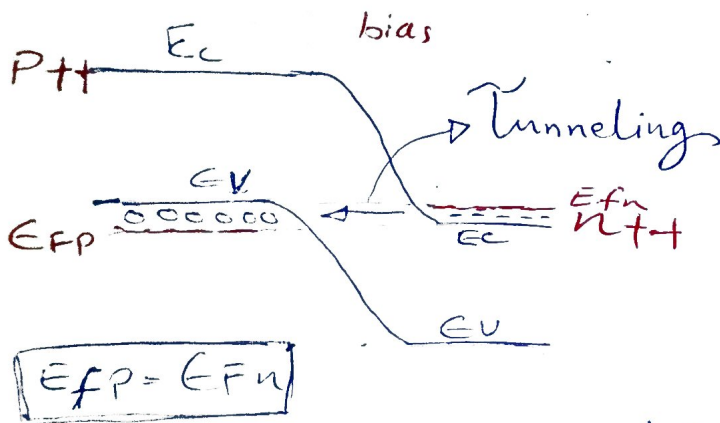 bias
P++ Ec
Tunneling
EV
Efn
EFP
n++
EC
EV
Efp = EFn